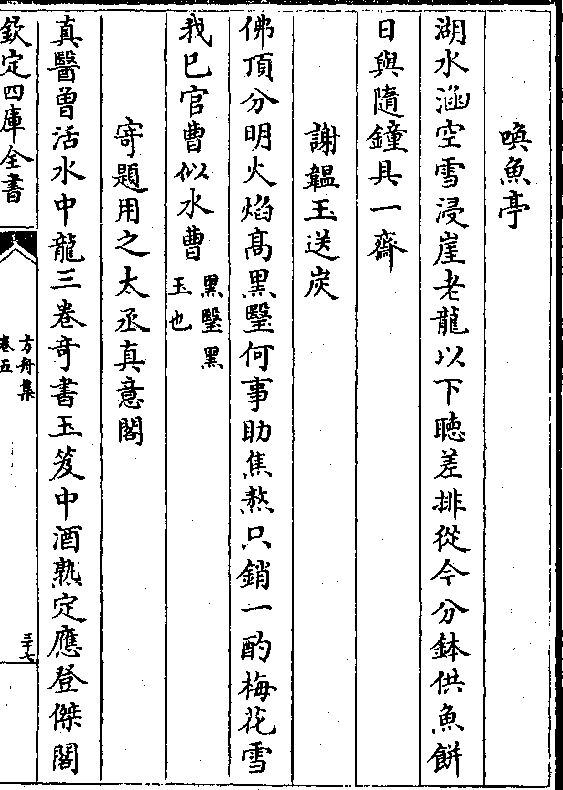 喚魚亭
湖水涵空雪浸崖老龍以下聴差排從今分鉢供魚餅
日與隨鐘具一齋
謝韞玉送炭
佛頂分明火焰髙黒瑿何事助焦熬只銷一酌梅花雪
我已官曹似水曹黒瑿黒
玉也
寄題用之太丞真意閣
真醫曾活水中龍三卷竒書玉笈中酒熟定應登傑閣
欽定四庫全書
方舟集
卷五
三十七